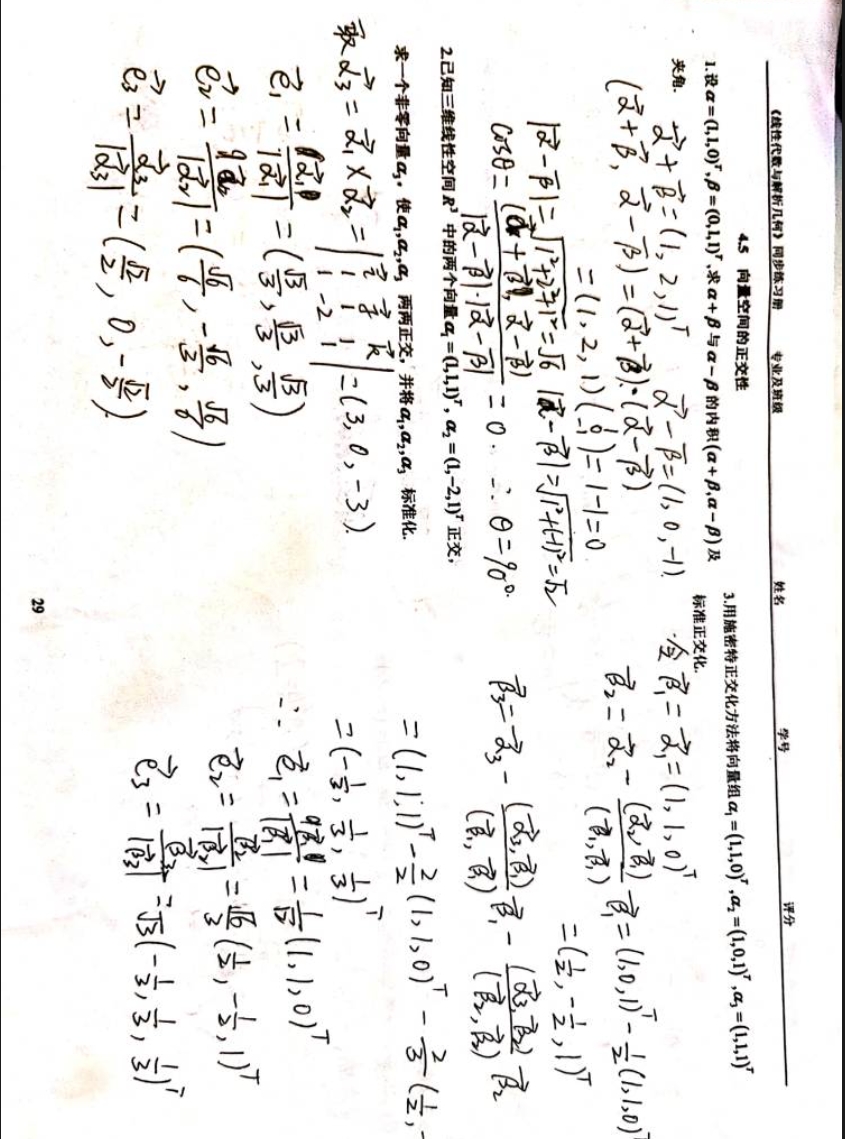 《线性代数与解析几何》同步练习册 专业及班级 姓名 学号 评分
4.5 向量空间的正交性
1.设α=(1,1,0)ᵀ,β=(0,1,1)ᵀ,求α+β与α−β的内积(α+β,α−β)及
夹角.
α⃗+β⃗=(1,2,1)ᵀ α⃗−β⃗=(1,0,−1).
(α⃗+β⃗, α⃗−β⃗)=(α⃗+β⃗)·(α⃗−β⃗)
=(1,2,1)(1 0 −1)=1−1=0
|α⃗−β⃗|=√(1²+2²+1²)=√6 |α⃗−β⃗|=√(1²+(−1)²)=√2
cosθ=(α⃗+β⃗, α⃗−β⃗)/|α⃗−β⃗|·|α⃗−β⃗|=0. ∴ θ=90°.
2.已知三维线性空间R³中的两个向量α₁=(1,1,1)ᵀ,α₂=(1,−2,1)ᵀ正交,
求一个非零向量α₃,使α₁,α₂,α₃两两正交,并将α₁,α₂,α₃标准化.
取α⃗₃=α⃗₁×α⃗₂=|i⃗ j⃗ k⃗ 1 1 1 1 −2 1|=(3,0,−3).
e⃗₁=α⃗₁/|α⃗₁|=(√3/3,√3/3,√3/3)
e⃗₂=α⃗₂/|α⃗₂|=(√6/6,−√6/3,√6/6)
e⃗₃=α⃗₃/|α⃗₃|=(√2/2,0,−√2/2).
3.用施密特正交化方法将向量组α₁=(1,1,0)ᵀ,α₂=(1,0,1)ᵀ,α₃=(1,1,1)ᵀ
标准正交化.
令β⃗₁=α⃗₁=(1,1,0)ᵀ
β⃗₂=α⃗₂−(α⃗₂,β⃗₁)/(β⃗₁,β⃗₁)β⃗₁=(1,0,1)ᵀ−1/2(1,1,0)ᵀ
=(1/2,−1/2,1)ᵀ
β⃗₃=α⃗₃−(α⃗₃,β⃗₁)/(β⃗₁,β⃗₁)β⃗₁−(α⃗₃,β⃗₂)/(β⃗₂,β⃗₂)β⃗₂
=(1,1,1)ᵀ−2/2(1,1,0)ᵀ−2/3(1/2,−
=(−1/3,1/3,1/3)ᵀ
∴ e⃗₁=β⃗₁/|β⃗₁|=1/√2(1,1,0)ᵀ
e⃗₂=β⃗₂/|β⃗₂|=√6/3(1/2,−1/2,1)ᵀ
e⃗₃=β⃗₃/|β⃗₃|=√3(−1/3,1/3,1/3)ᵀ
29